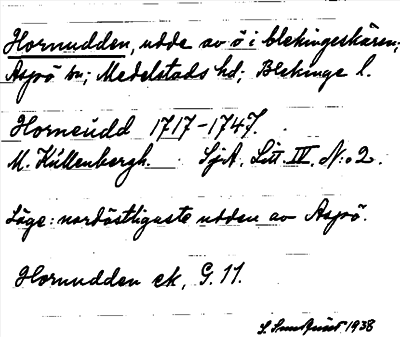 Hornudden, udde av ö i blekingeskären;
Aspö sn; Medelstads hd; Blekinge l.
Horneüdd 1717–1747.
M. Küllenbergh. SjA. Litt. IV. N:o 2.
Läge: nordöstligaste udden av Aspö.
Hornudden ek, G. 11.
S. 1938